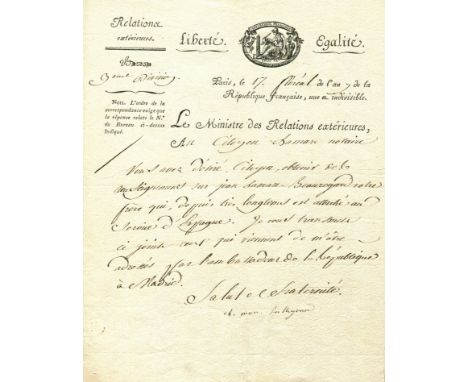 Relations
extérieures.
Liberté
Egalité.
Bureau
Division
Paris, le 17 floréal de l'an 7 de la
République française, une et indivisible.
Nota. L'ordre de la
correspondance exige que
la réponse relate le N.º
du Bureau ci-dessus
indiqué.
Le Ministre des Relations extérieures,
Au Citoyen notaire
Vous avez désiré, Citoyen, obtenir des
renseignements sur jean Beauregard votre
frère qui, depuis très longtems est attaché au
Service d'Espagne. Je vous transmets
ci joints ceux qui viennent de m'être
adressés par l'ambassadeur de la République
à Madrid.
Salut et Fraternité.